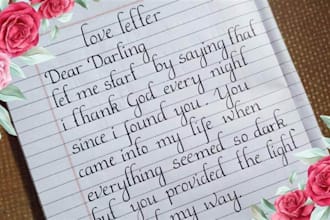 love letter
Dear Darling
let me start by saying that
i thank God every night
since i found you. You
came into my life when
everything seemed so dark
but you provided the light
of my way